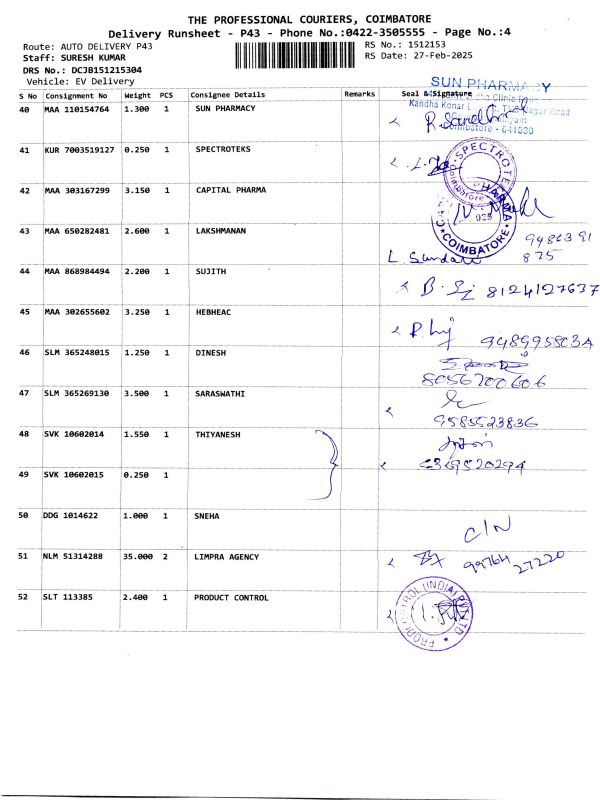 THE PROFESSIONAL COURIERS, COIMBATORE
Delivery Runsheet - P43 - Phone No.:0422-3505555 - Page No.:4
Route: AUTO DELIVERY P43
RS No.: 1512153
Staff: SURESH KUMAR
RS Date: 27-Feb-2025
DRS No.: DCJB151215304
Vehicle: EV Delivery
S No Consignment No Weight PCS Consignee Details Remarks Seal & Signature
SUN PHARMACY
40 MAA 110154764 1.300 1 SUN PHARMACY
Kandha Konar
Road
Coimbatore - 641030
41 KUR 7003519127 0.250 1 SPECTROTEKS
42 MAA 303167299 3.150 1 CAPITAL PHARMA
COIMBATORE
43 MAA 650282481 2.600 1 LAKSHMANAN
L. Sundari
44 MAA 868984494 2.200 1 SUJITH
8124127637
45 MAA 302655602 3.250 1 HEBHEAC
46 SLM 365248015 1.250 1 DINESH
8056700606
47 SLM 365269130 3.500 1 SARASWATHI
9585523836
48 SVK 10602014 1.550 1 THIYANESH
49 SVK 10602015 0.250 1
50 DDG 1014622 1.000 1 SNEHA
C/N
51 NLM 51314288 35.000 2 LIMPRA AGENCY
99764 27220
52 SLT 113385 2.400 1 PRODUCT CONTROL
PRODUCT CONTROL (INDIA) PVT LTD